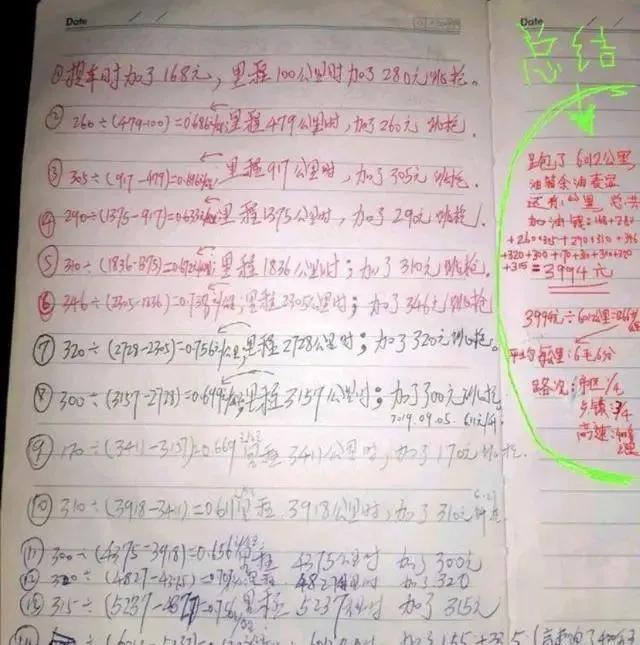 Date
①提车时加了168元，里程100公里时加了280元跳枪。
②260÷(479-100)=0.686 里程479公里时，加了260元跳枪.
③305÷(917-479)=0.696 里程917公里时，加了305元跳枪.
④290÷(1375-917)=0.633 里程1375公里时，加了290元跳枪.
⑤310÷(1836-1375)=0.672 里程1836公里时；加了310元跳枪。
⑥346÷(2305-1836)=0.737 里程2305公里时；加了346元跳枪
⑦320÷(2728-2305)=0.756 里程2728公里时；加了320元跳枪。
⑧300÷(3157-2728)=0.699 里程3157公里时；加了300元跳枪
2019.09.05.
⑨170÷(3411-3157)=0.669 里程3411公里时，加了170元跳枪.
⑩310÷(3918-3411)=0.611 里程3918公里时，加了310元
⑪300÷(4375-3918)=0.656 里程 4375公里时 加了300元
⑫320÷(4827-4375)=0.707 里程 4827公里时 加了320
⑬315÷(5237-4827) 里程 5237公里时 加了315元
Date
总结
跑了6012公里，
油箱余油表显
还有 公里 总共
加油钱:168+280
+260+305+290+310+346
+320+300+170+310+300+320
+315=3994元
3994元÷6012公里=0.66
平均每公里:6毛6分
路况:市区1/4
乡镇:3/4
高速: